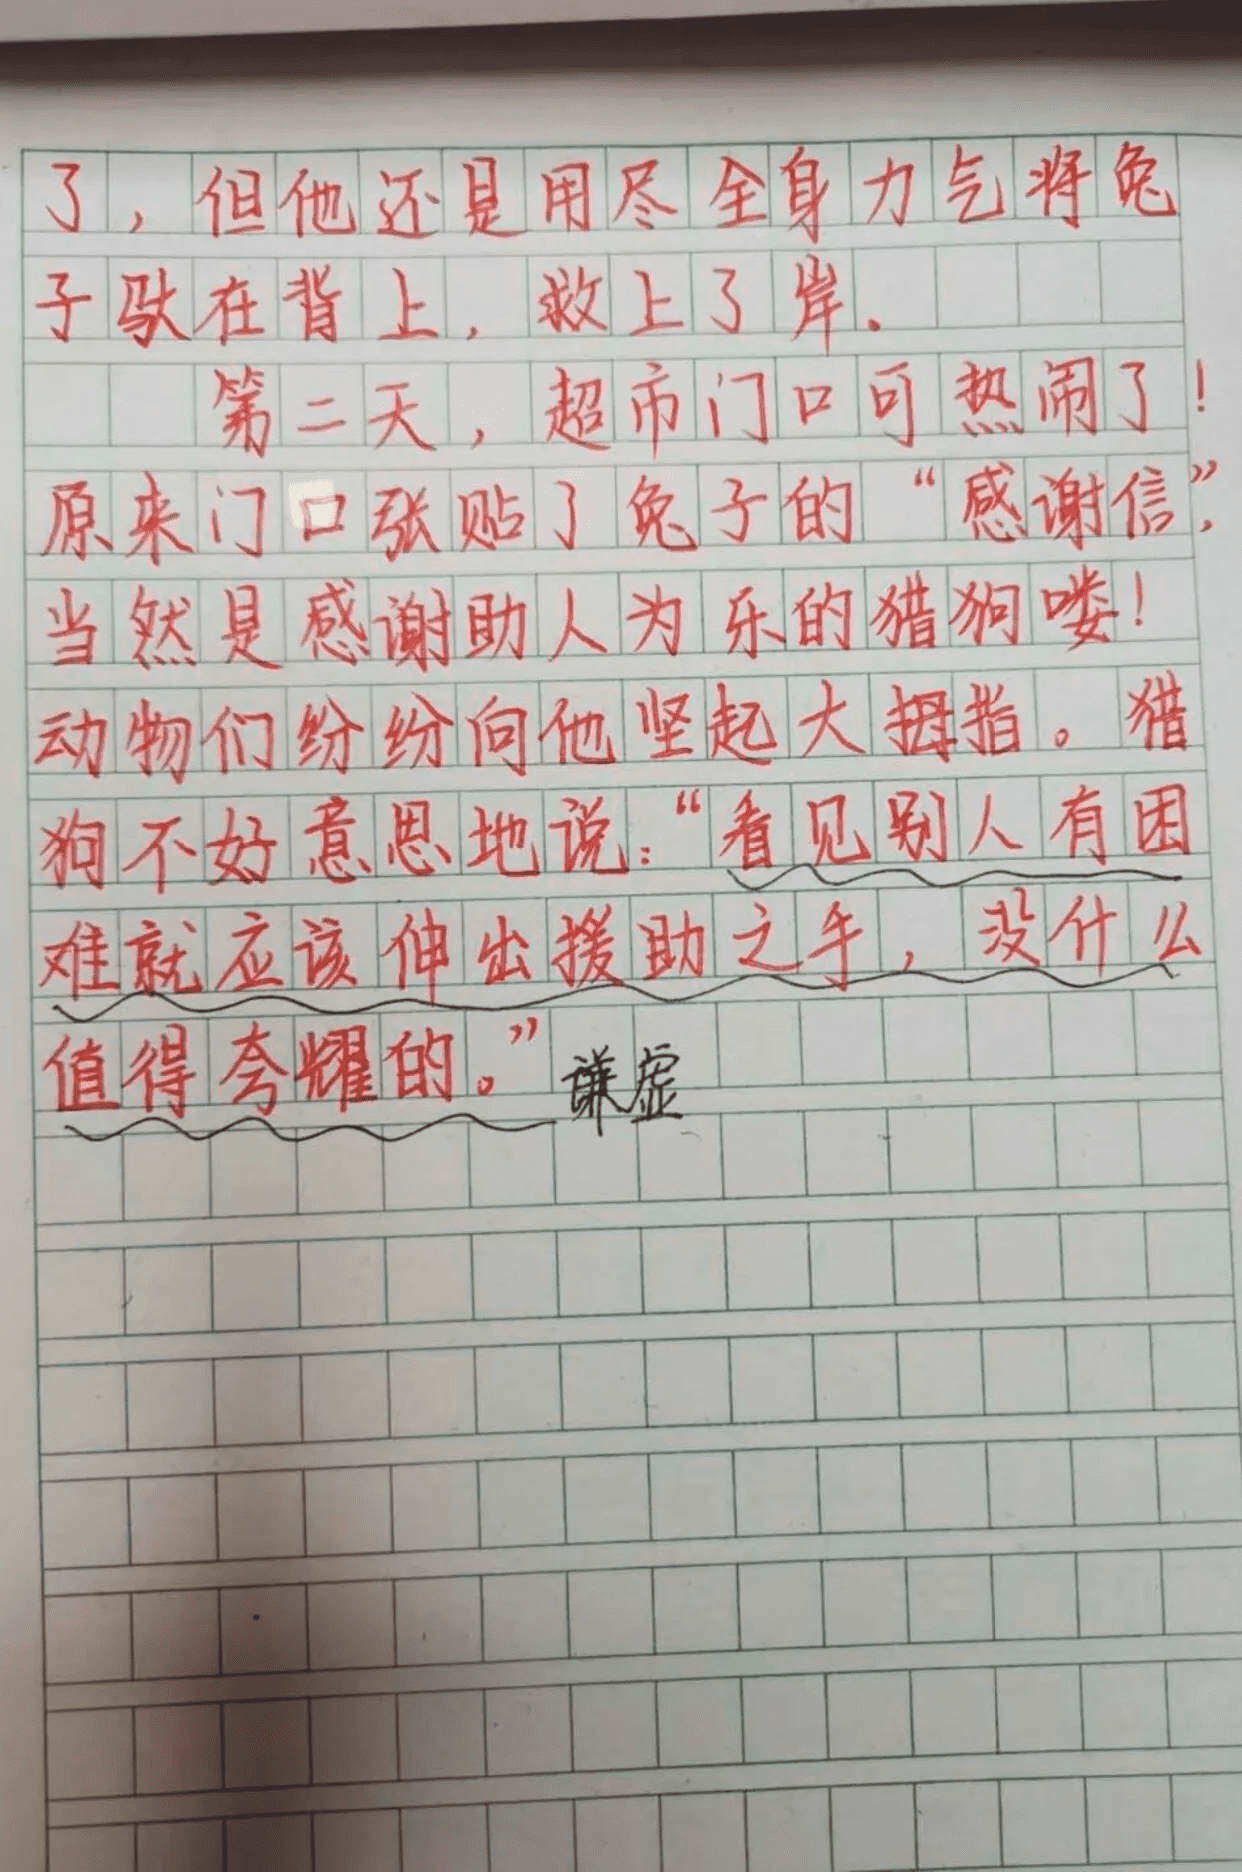 了，但他还是用尽全身力气将兔
子驮在背上，救上了岸.
第二天，超市门口可热闹了！
原来门口张贴了兔子的“感谢信”，
当然是感谢助人为乐的猎狗喽！
动物们纷纷向他坚起大拇指。猎
狗不好意思地说：“看见别人有困
难就应该伸出援助之手，没什么
值得夸耀的。”谦虚